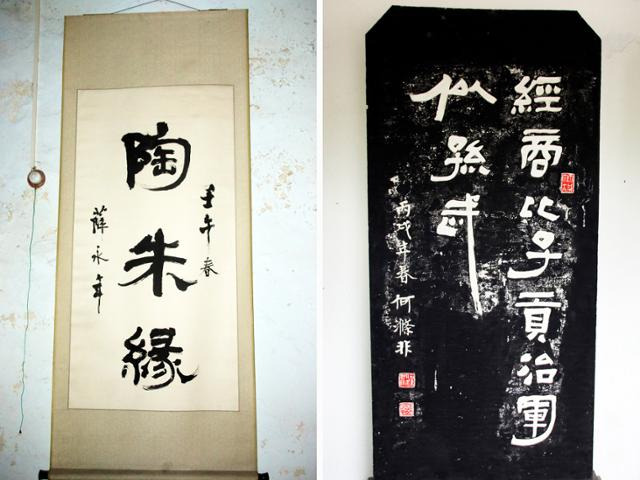 陶朱緣
壬午春
薛永年
經商比子貢治軍
似孫武
丙戌年春何滌非